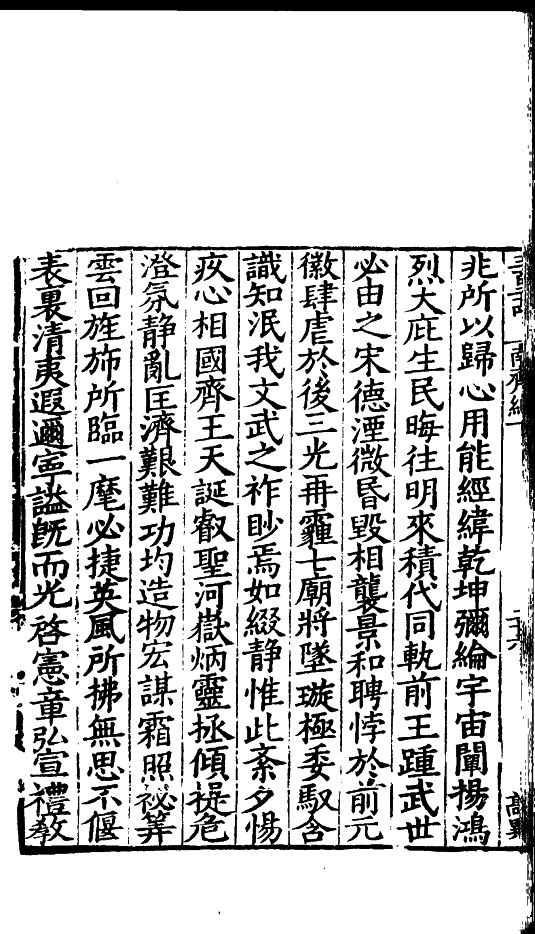 兆所以歸心用能經緯乾坤彌綸宇宙闡揚鴻
烈大庇生民晦往明來積代同軌前王踵武世
必由之宋德湮微昏毀相襲景和騁悖於前元
徽肆虐於後三光再霾七廟將墜璇極委馭含
識知泯我文武之祚眇焉如綴静惟此紊夕惕
疚心相國齊王天誕叡聖河嶽炳靈拯傾提危
澄氛静亂匡濟艱難功均造物宏謀霜照祕筭
雲回旌斾所臨一麾必捷英風所拂無思不偃
表裏清夷遐邇寧謐旣而光啓憲章弘宣禮敎